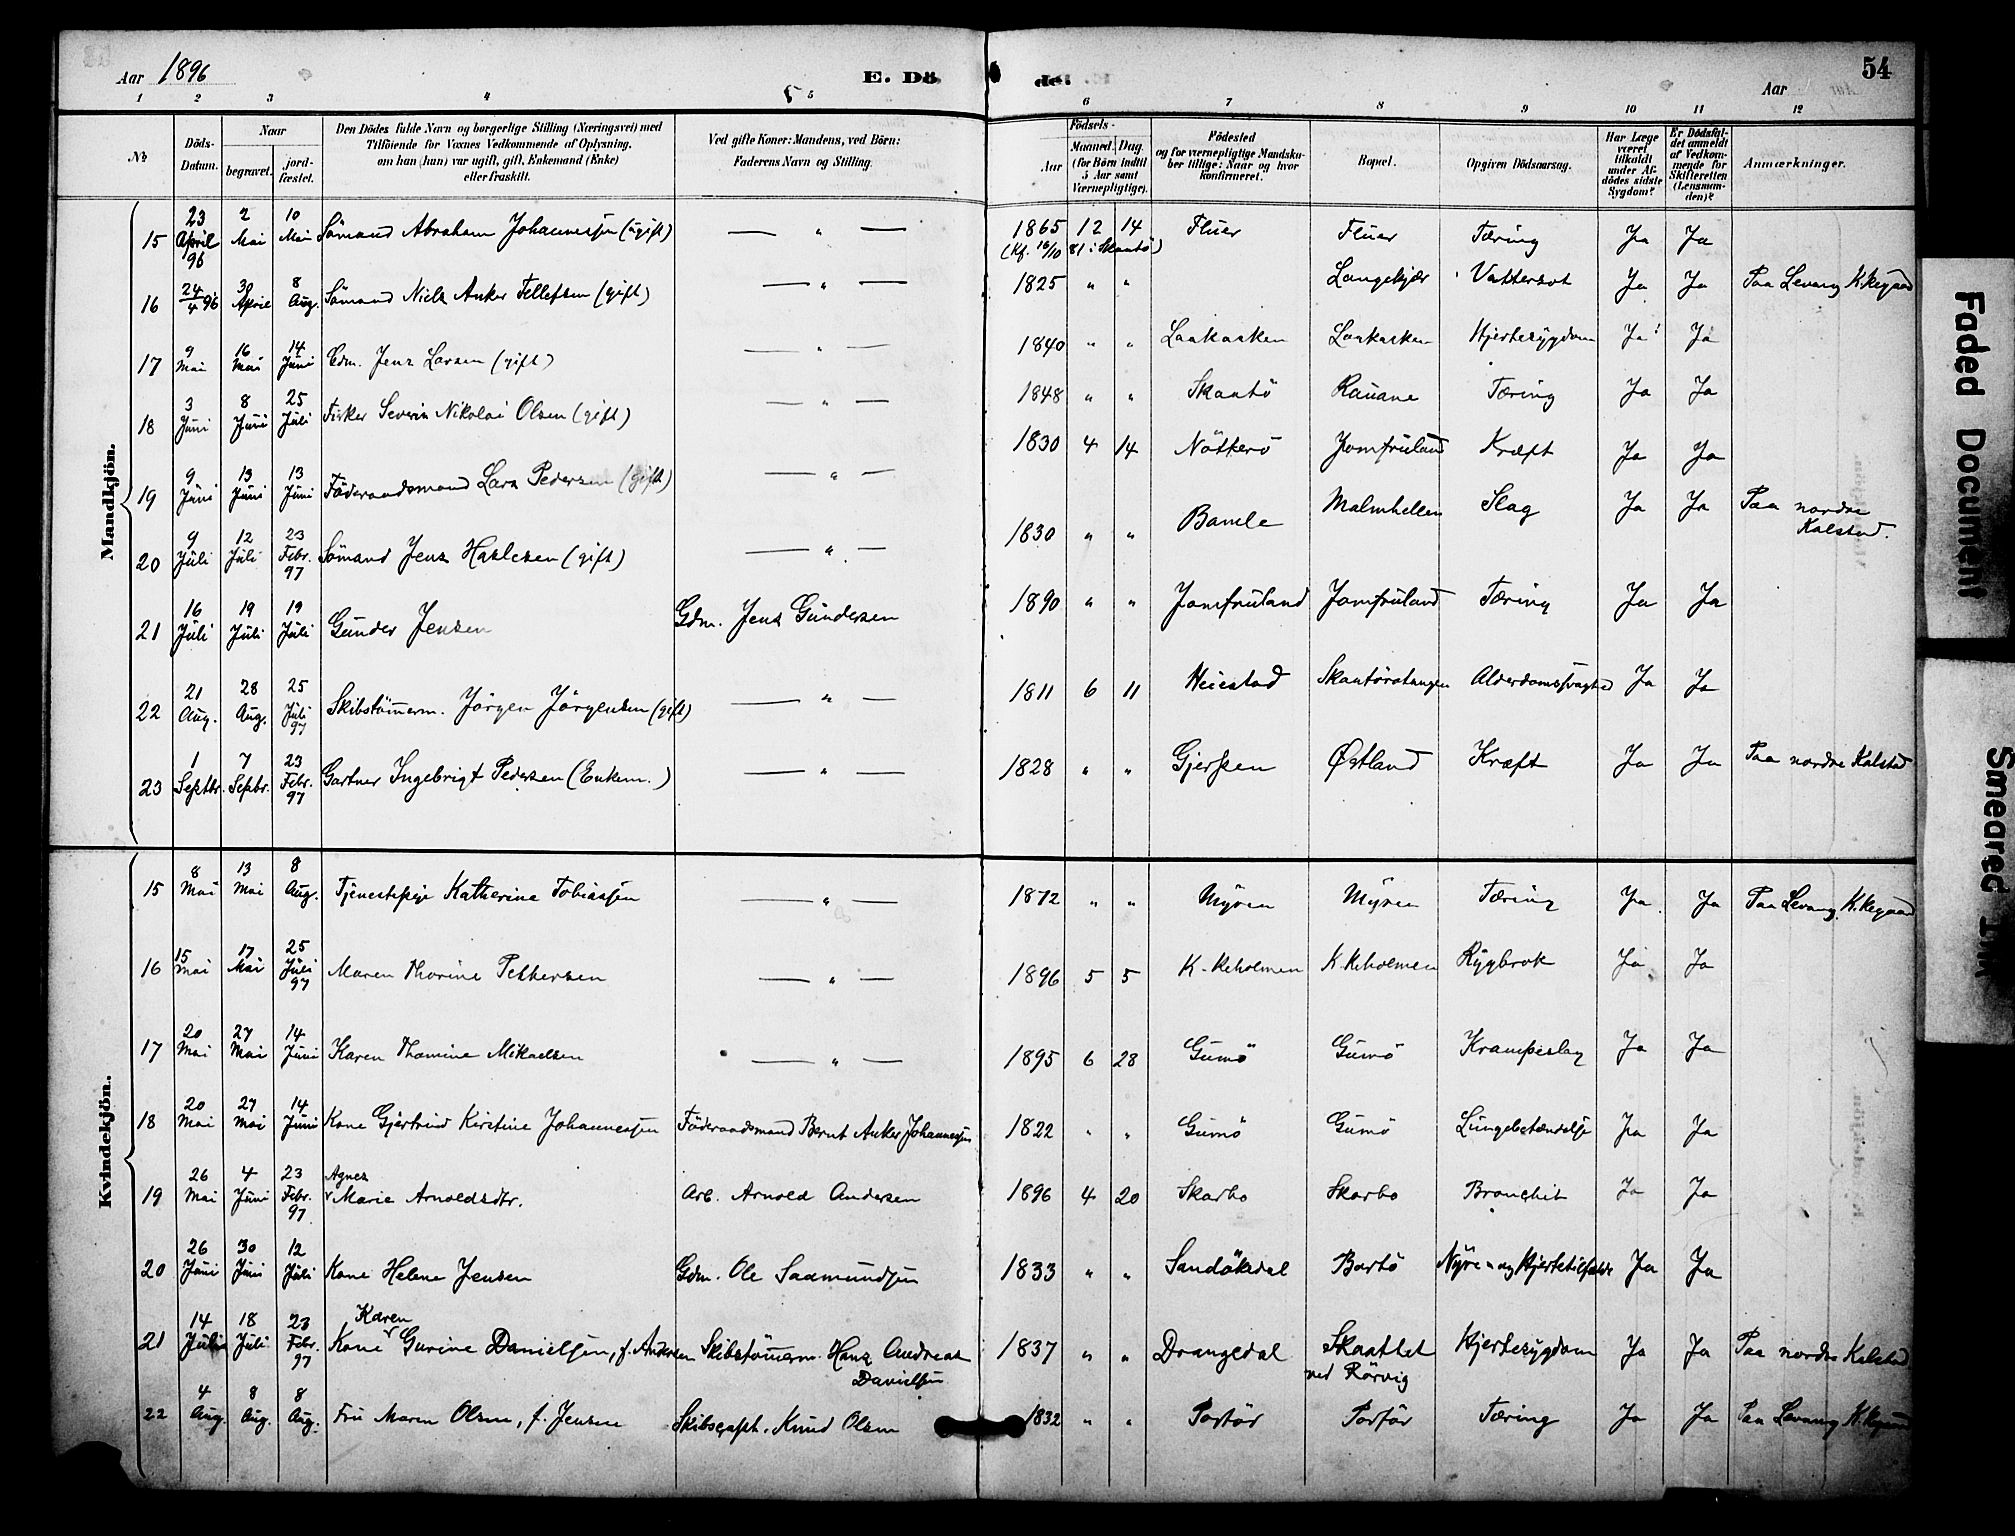 Aar 1896 E. Döde. Aar 54
1 2 3 4 5 6 7 8 9 10 11 12
№ Döds-Datum. Naar begravet. jord-fæstet. Den Dödes fulde Navn og borgerlige Stilling (Næringsvei) med Tilföiende for Voxnes Vedkommende af Oplysning, om han (hun) var ugift, gift, Enkemand (Enke) eller fraskilt. Ved gifte Koner: Mandens, ved Börn: Faderens Navn og Stilling. Födsels- Aar Maaned. Dag. (for Börn indtil 5 Aar samt Værnepligtige). Födested og for værnepligtige Mandskaber tillige: Naar og hvor konfirmeret. Bopæl. Opgiven Dödsaarsag. Har Læge været tilkaldt under Afdödes sidste Sygdom? Er Dödsfaldet anmeldt af Vedkommende for Skifteretten (Lensmanden)? Anmærkninger.
Mandkjön.
15 23 April 96 2 Mai 10 Mai Sömand Abraham Johannessen (ugift) — " — 1865 12 14 Fluer Fluer Tæring Ja Ja
(Kf. 16/10 81 i Skaatö)
16 24/4 96 30 April 8 Aug. Sömand Niels Anker Tellefsen (gift) — " — 1825 " " Langekjær Vattersot Ja Ja Paa Levang K.kegaard
17 9 Mai 16 Mai 14 Juni Gdm. Jens Larsen (gift) — " — 1840 " " Laakasken Laakasken Hjertesygdom Ja Ja
18 3 Juni 8 Juni 25 Juli Fisker Severin Nikolai Olsen (gift) — " — 1848 " " Skaatö Rauane Tæring Ja Ja
19 9 Juni 13 Juni 13 Juni Föderaadsmand Lars Pedersen (gift) — " — 1830 4 14 Nötterö Jomfruland Kræft Ja Ja
20 9 Juli 12 Juli 23 Febr. 97 Sömand Jens Harlesen (gift) — " — 1830 " " Bamle Malmhellen Slag Ja Ja Paa nordre Kalstad.
21 16 Juli 19 Juli 19 Juli Gunder Jensen Gdm. Jens Gundersen 1890 " " Jomfruland Jomfruland Tæring Ja Ja
22 21 Aug. 28 Aug. 25 Juli 97 Skibstömerm. Jörgen Jörgensen (gift) — " — 1811 6 11 Heiestad Skaatöratangen Alderdomssvaghed Ja Ja
23 1 Septbr. 7 Septbr. 23 Febr. 97 Gartner Ingebrigt Pedersen (Enkem.) — " — 1828 " " Gjerpen Østland Kræft Ja Ja Paa nordre Kalstad
Kvindekjön.
15 8 Mai 13 Mai 8 Aug. Tjenestepige Katherine Tobiassen — " — 1872 " " Myren Myren Tæring Ja Ja Paa Levang K.kegaard
16 15 Mai 17 Mai 25 Juli 97 Maren Thorine Pettersen — " — 1896 5 5 K.keholmen K.keholmen Rygbrok Ja Ja
17 20 Mai 27 Mai 14 Juni Karen Thomine Mikaelsen — " — 1895 6 28 Gumö Gumö Krampeslag Ja Ja
18 20 Mai 27 Mai 14 Juni Kone Gjertrud Kirstine Johannessen Föderaadsmand Bernt Anker Johannessen 1822 " " Gumö Gumö Lungebetændelse Ja Ja
19 26 Mai 4 Juni 23 Febr. 97 Agnes Marie Arnoldsdtr. Arb. Arnold Andersen 1896 4 20 Skarbo Skarbo Bronchit Ja Ja
20 26 Juni 30 Juni 12 Juli Kone Helene Jensen Gdm. Ole Saamundsen 1833 " " Sandökedal Bartö Nyre- og Hjertetilfælde Ja Ja
21 14 Juli 18 Juli 23 Febr. 97 Kone Karen Gurine Danielsen, f. Andersen Skibstömerm. Hans Andreas Danielsen 1837 " " Drangedal Skaattet ved Rörvig Hjertesygdom Ja Ja Paa nordre Kalstad
22 4 Aug. 8 Aug. 8 Aug. Fru Maren Olsen, f. Jensen Skibscapt. Knud Olsen 1832 " " Portör Portör Tæring Ja Ja Paa Levang K.kegaard
Faded Document
Smeared Ink